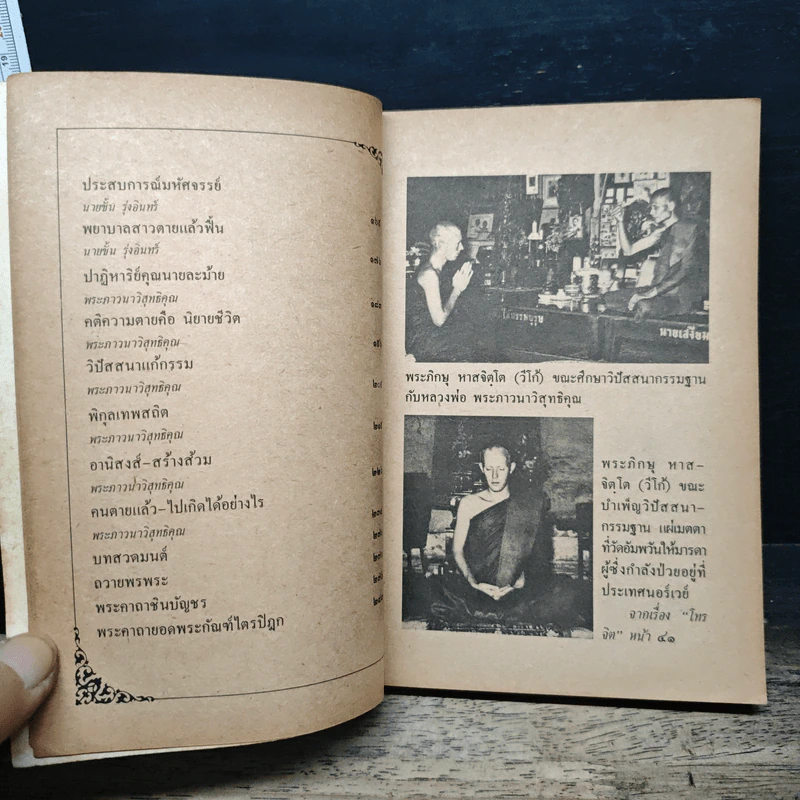 ประสบการณ์มหัศจรรย์
นายขั้น รุ่งอินทร์
พยาบาลสาวตายแล้วฟื้น
นายขั้น รุ่งอินทร์
ปาฏิหาริย์คุณนายละม้าย
พระภาวนาวิสุทธิคุณ
คติความตายคือ นิยายชีวิต
พระภาวนาวิสุทธิคุณ
วิปัสสนาแก้กรรม
พระภาวนาวิสุทธิคุณ
พิกุลเทพสถิต
พระภาวนาวิสุทธิคุณ
อานิสงส์-สร้างส้วม
พระภาวนาวิสุทธิคุณ
คนตายแล้ว-ไปเกิดได้อย่างไร
พระภาวนาวิสุทธิคุณ
บทสวดมนต์
ถวายพรพระ
พระคาถาชินบัญชร
พระคาถายอดพระกัณฑ์ไตรปิฎก
นายเสงี่ยม
พระภิกษุ หาสจิตฺโต (วีโก้) ขณะศึกษาวิปัสสนากรรมฐาน
กับหลวงพ่อ พระภาวนาวิสุทธิคุณ
พระภิกษุ หาส-
จิตฺโต (วีโก้) ขณะ
บำเพ็ญวิปัสสนา-
กรรมฐาน แผ่เมตตา
ที่วัดอัมพวันให้มารดา
ผู้ซึ่งกำลังป่วยอยู่ที่
ประเทศนอร์เวย์
จากเรื่อง "โทร
จิต" หน้า ๔๑